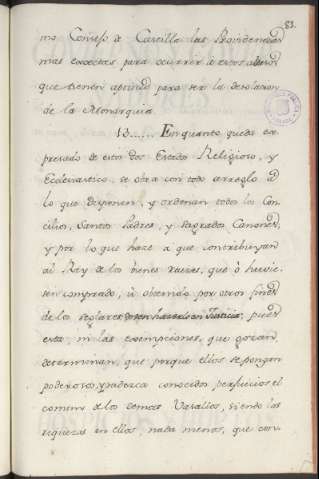 83.
mo Consejo de Castilla las Providencias
mas exactas para ocurrir à estos abusos
que tienen aptitud para ser la desolacion
de la Monarquia.
13...... En quanto queda ex-
presado de estos dos Estados Religioso, y
Ecclesiastico, se obra con todo arreglo à
lo que disponen, y ordenan todos los Con-
cilios, Santos Padres, y Sagrados Canones,
y por lo que haze a que contribuyan
al Rey de los bienes raices, que ò huvie-
sen comprado, ù obtenido por otros fines
de los seglares deven hacerlo en Justicia, pues
esta, ni las exempciones, que gozan,
determinan, que porque ellos se pongan
poderosos, padezca conocidos perjuicios el
comun de los demas Vasallos, siendo las
riquezas en ellos nada menos, que con-